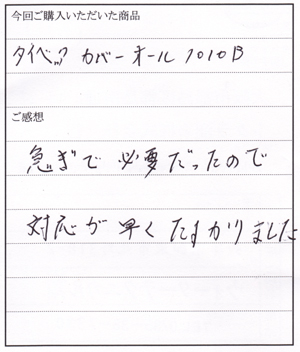 今回ご購入いただいた商品
タイベック カバーオール 1010B
ご感想
急ぎで必要だったので
対応が早くたすかりました